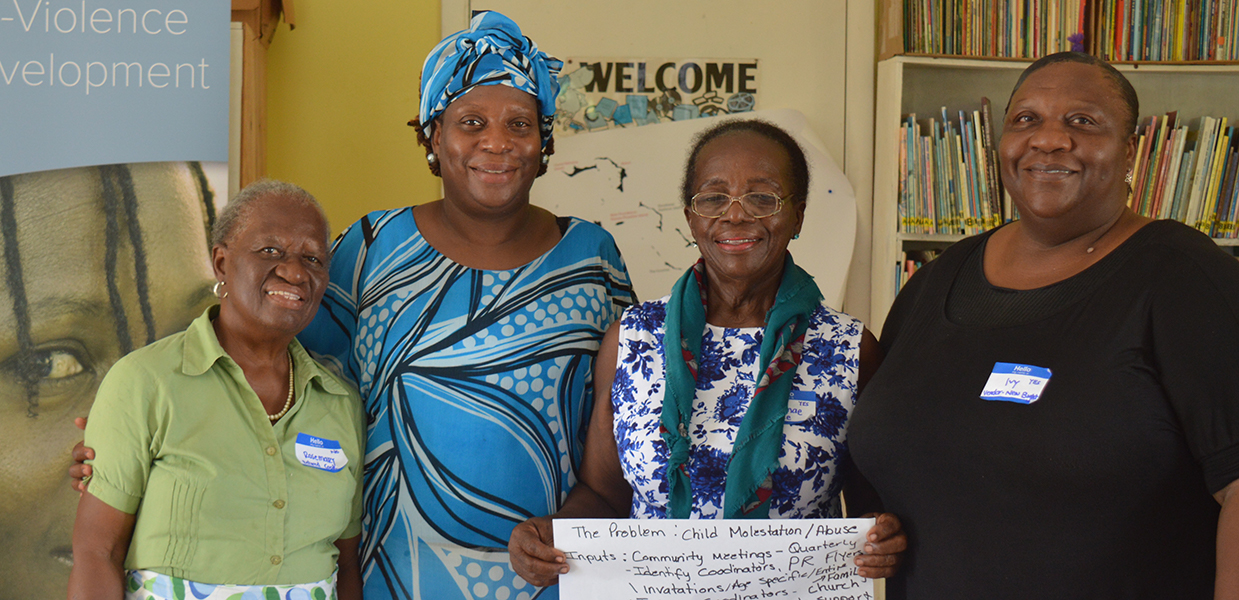 -Violence
velopment
WELCOME
Hello
Rosemary
Hello
Ivy YES
Vendor-New Bight
YES
nae
e
The Problem : Child Molestation/Abuse
Inputs : Community Meetings - Quarterly
-Identify Coodinators, PR Flyers
\ Invatations/Age Specific/Entire Family
Coordinators - Church
support